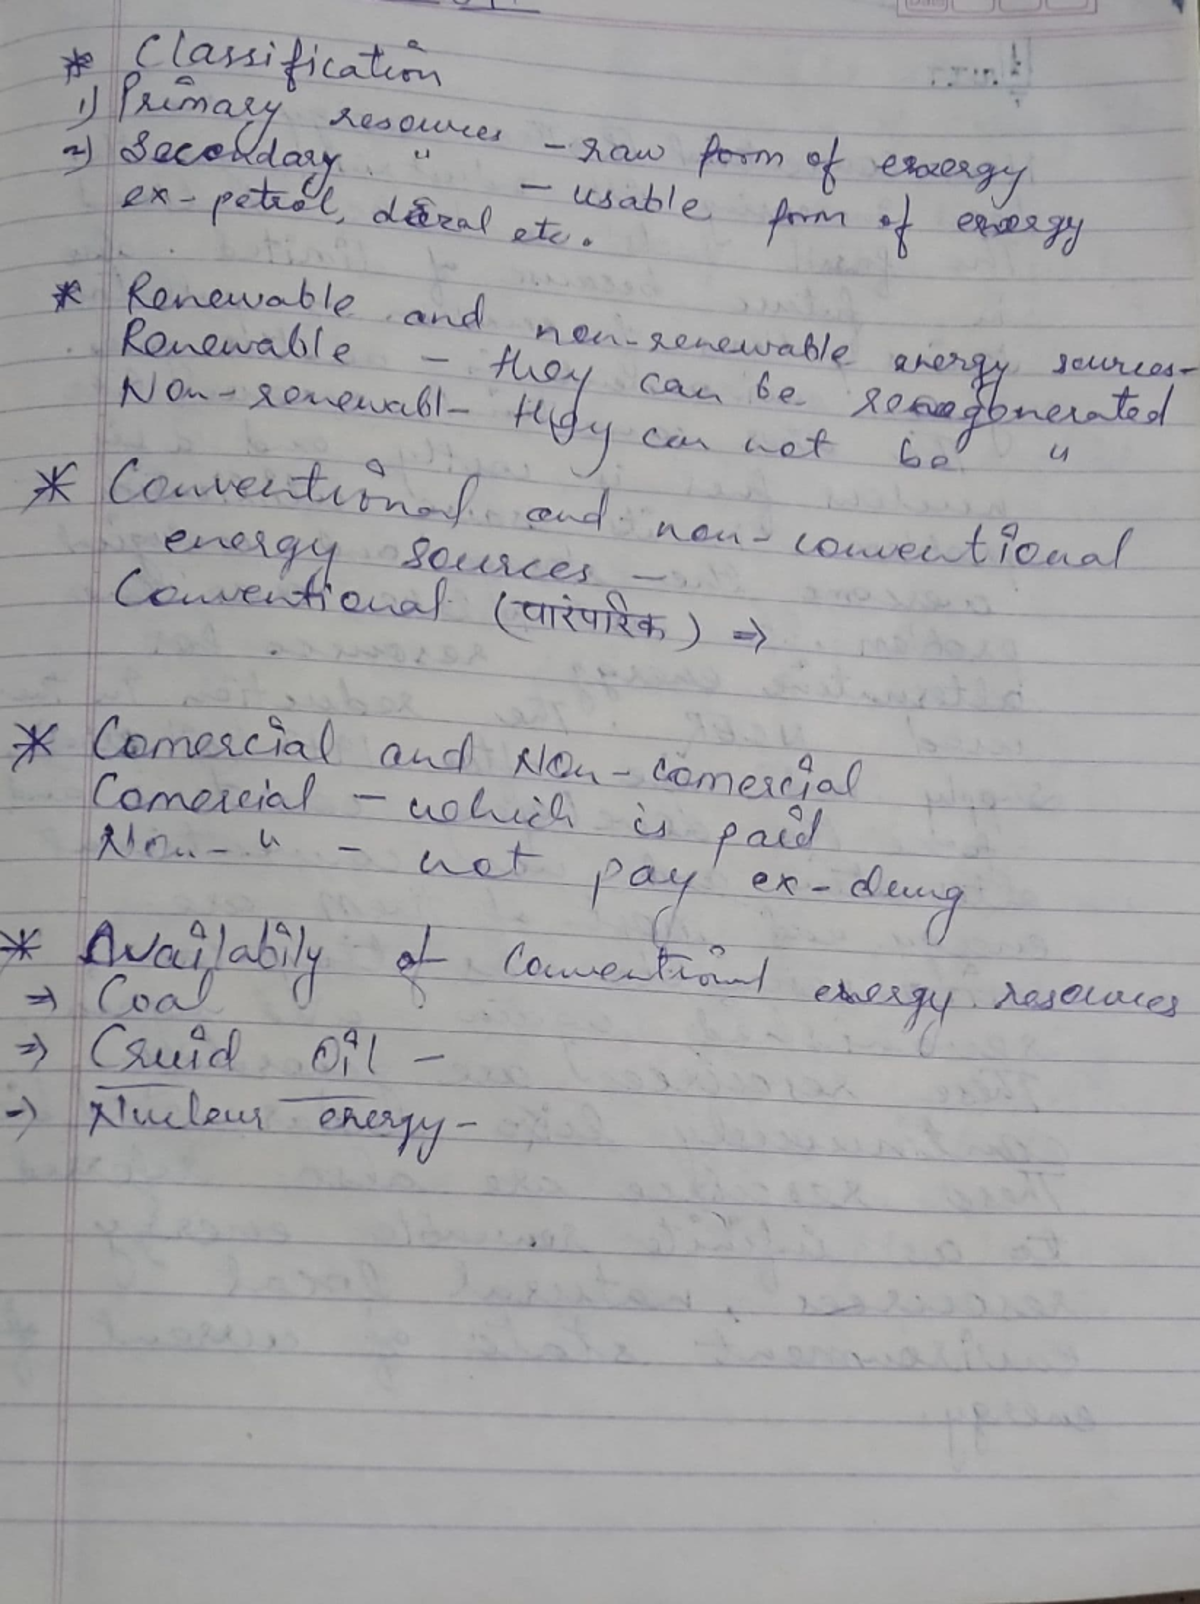 * Classification
1) Primary resources - raw form of energy
2) Secondary " - usable form of energy
ex - petrol, diezal etc.
* Renewable and non-renewable energy sources-
Renewable - they can be regenerated
Non-renewabl- they can not be "
* Conventional and non-conventional
energy sources -
Conventional (पारंपारिक) ⇒
* Comercial and Non-comercial
Comercial - which is paid
Non- " - not pay ex-dung
* Availabily of conventional energy resources
⇒ Coal
⇒ Cruid Oil -
⇒ Nuclear energy-